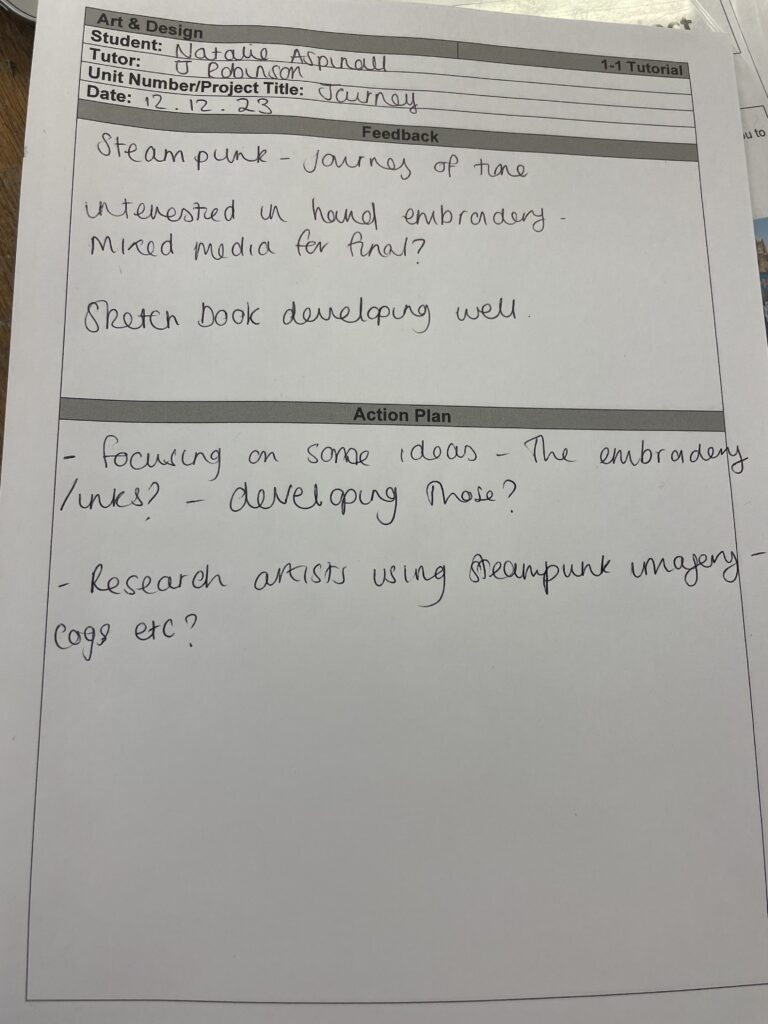 Art & Design
1-1 Tutorial
Student: Natalie Aspinall
Tutor: J Robinson
Unit Number/Project Title: Journey
Date: 12.12.23
Feedback
Steampunk - Journey of time
interested in hand embradery -
Mixed media for final?
Sketch book developing well.
Action Plan
- focusing on some ideas - The embradery
/inks? - developing those?
- Research artists using steampunk imagery -
cogs etc?
u to